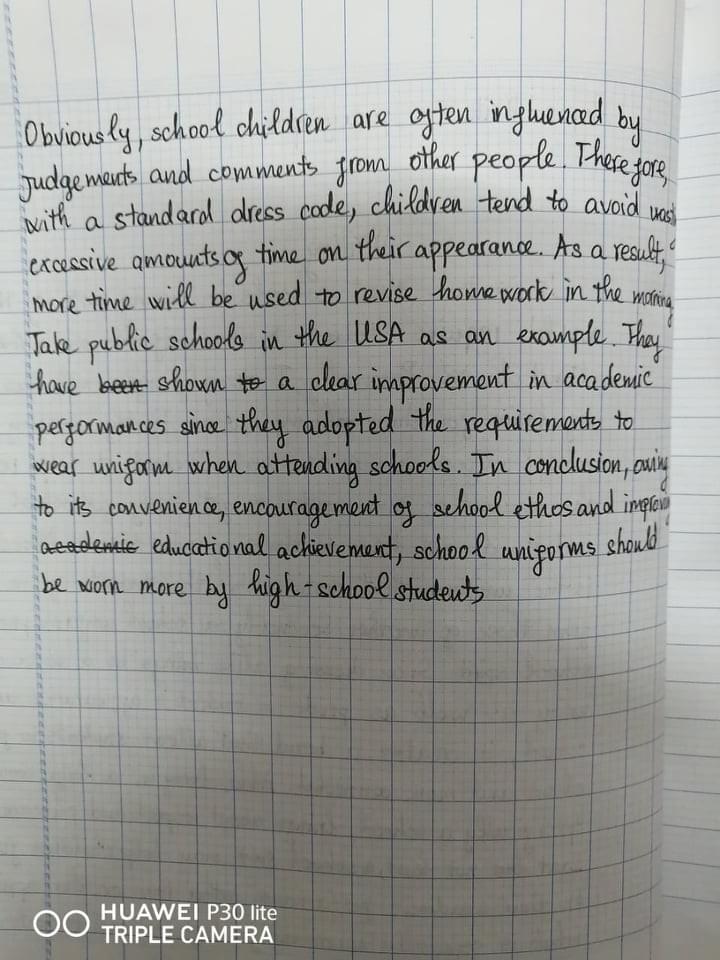 Obviously, school children are often influenced by
judgements and comments from other people. Therefore,
with a standard dress code, children tend to avoid
excessive amounts of time on their appearance. As a result,
more time will be used to revise homework in the morning
Take public schools in the USA as an example. They
have been shown to a clear improvement in academic
performances since they adopted the requirements to
wear uniform when attending schools. In conclusion, owing
to its convenience, encouragement of school ethos and
academic educational achievement, school uniforms should
be worn more by high-school students
HUAWEI P30 lite
TRIPLE CAMERA